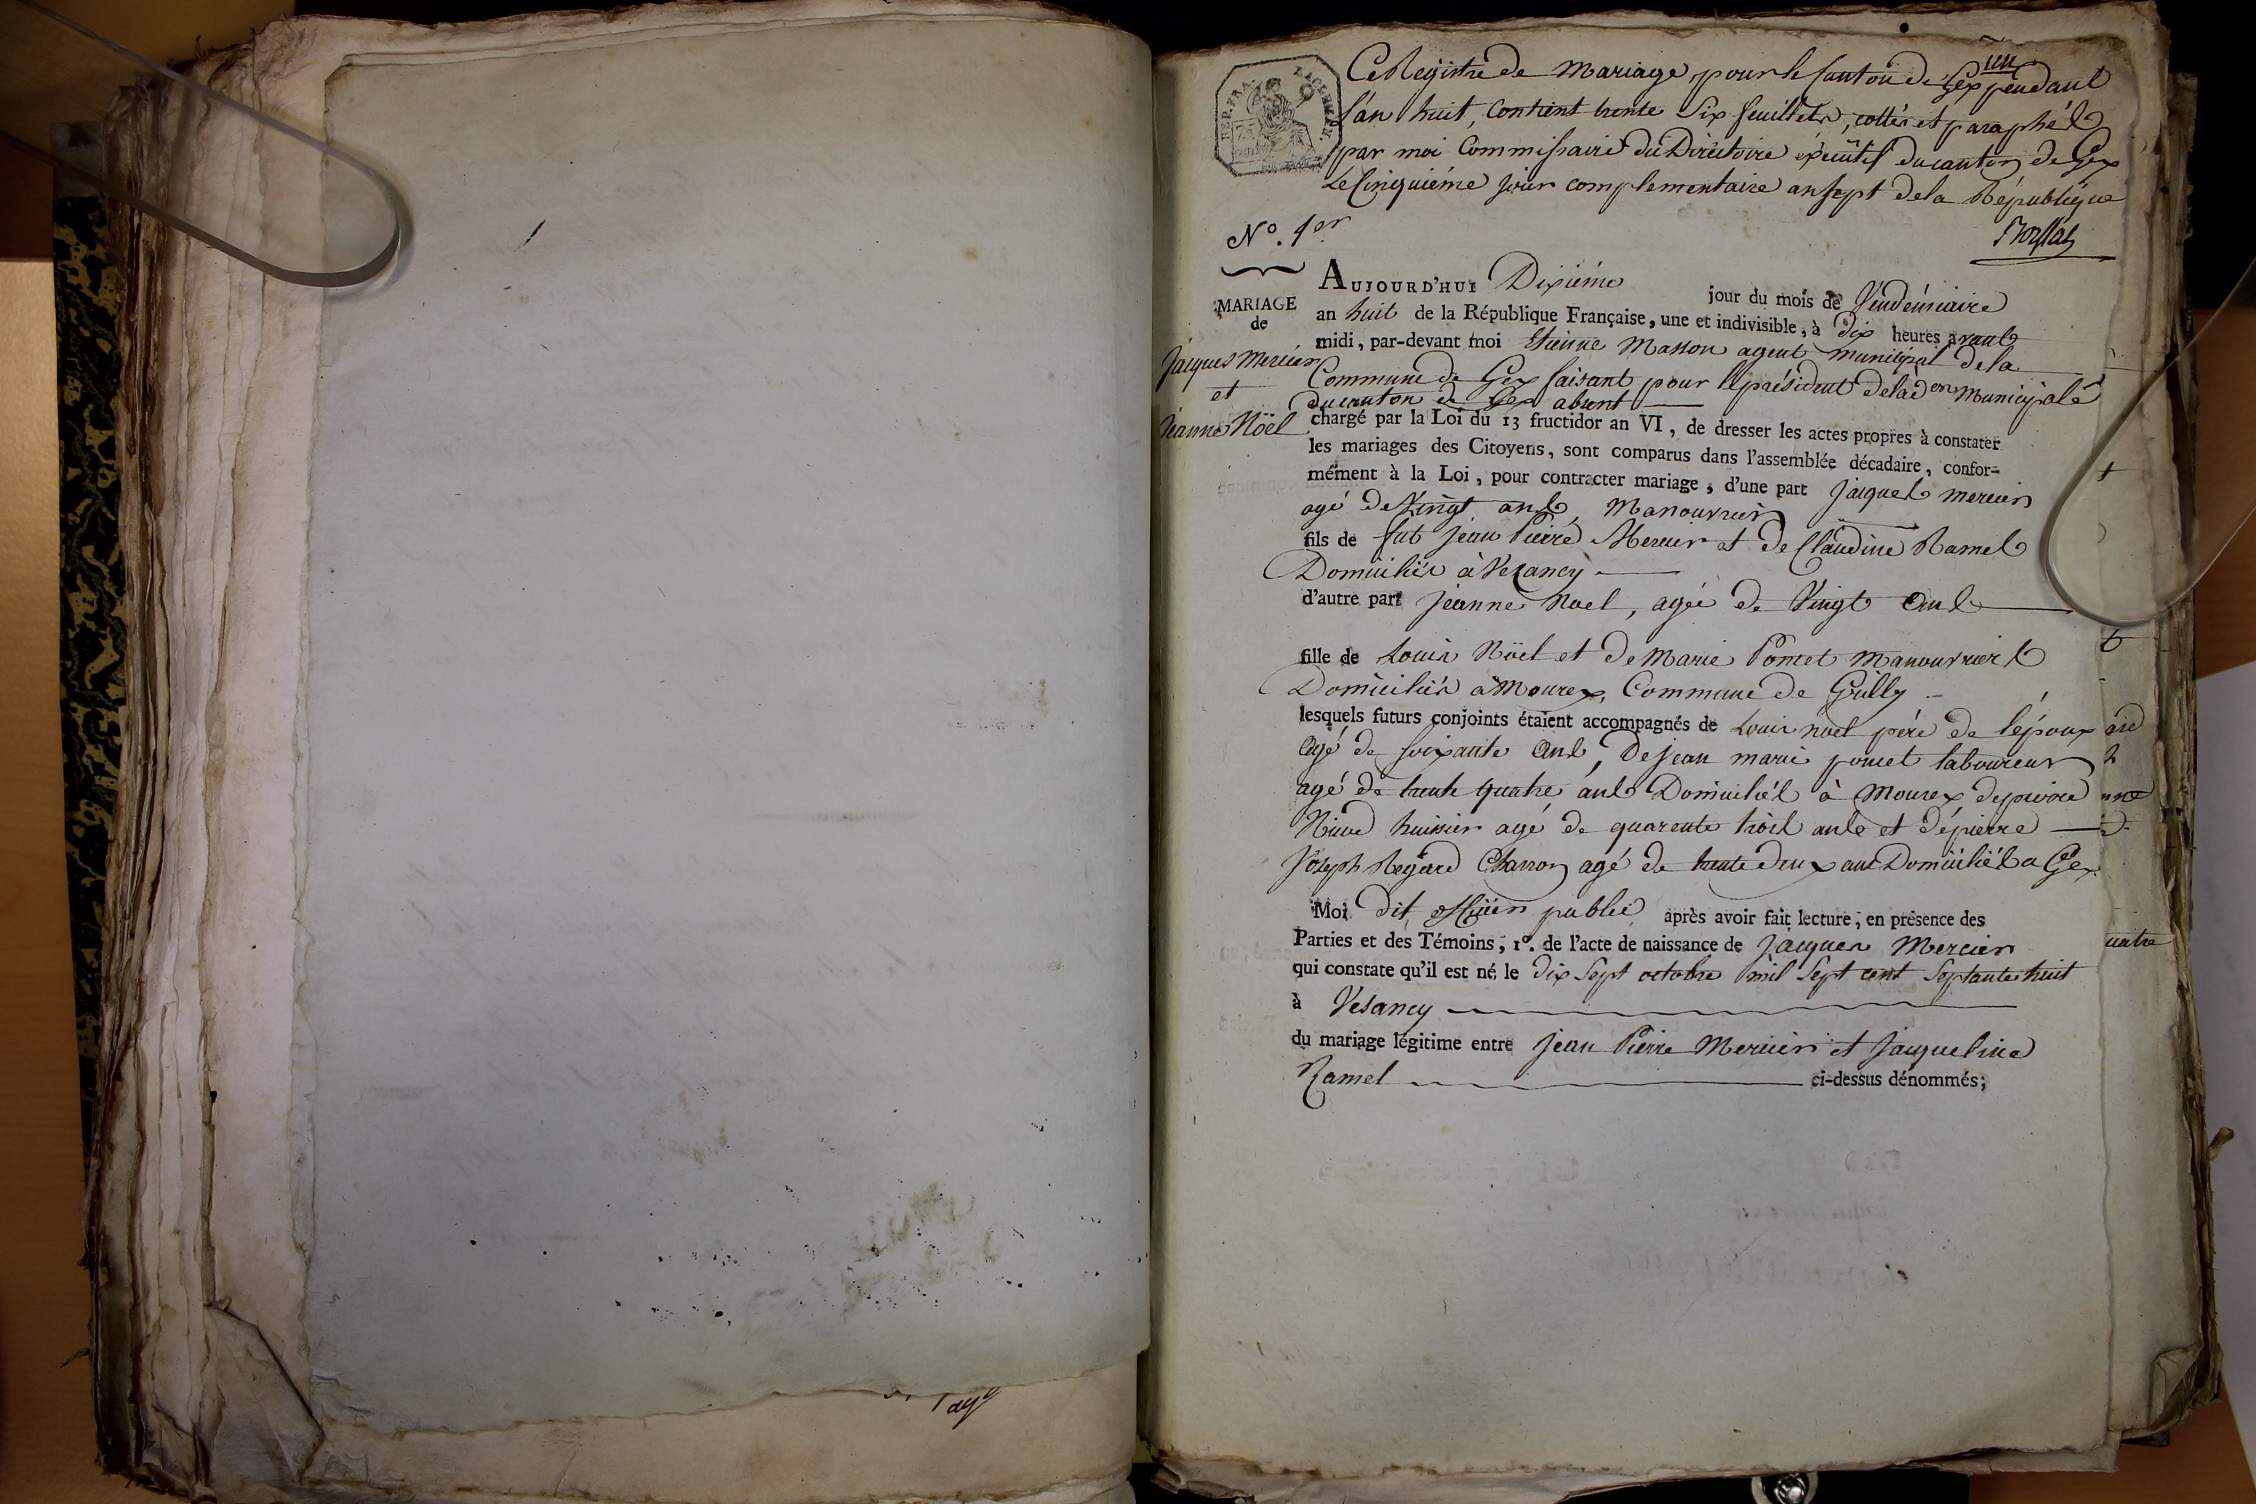 un
Ce Registre de Mariage, pour le Canton de Gex pendant
l'an huit, contient trente Six feuillets, cottés et paraphés
par moi Commissaire du Directoire éxécutif du canton de Gex
Le Cinquiéme jour complementaire an sept de la République
REP. FRA.
75
N°. 1er
AUJOURD'HUI Dixiéme jour du mois de Vendémiaire
MARIAGE
de
Jacques Mercier
et
Jeanne Nöel
an huit de la République Française, une et indivisible, à dix heures avant
midi, par-devant moi Etienne Masson agent municipal de la
Commune de Gex faisant pour le président de l'ad.on Municipale
du canton de Gex absent
chargé par la Loi du 13 fructidor an VI, de dresser les actes propres à constater
les mariages des Citoyens, sont comparus dans l'assemblée décadaire, confor-
mément à la Loi, pour contracter mariage, d'une part Jacques mercier
agé de Vingt ans, Manouvrier
fils de fut Jean Pierre Mercier et de Claudine Ramel
Domiciliés à Vezancy
d'autre part Jeanne Noel, agée de Vingt ans
fille de Louis Nöel et de Marie Poncet Manouvriers
Domiciliés à Mourex, Commune de Grilly
lesquels futurs conjoints étaient accompagnés de Louis noel pére de l'époux
agé de soixante ans, De jean marie poncet laboureur
agé de trente quatre ans Domiciliés à Mourex,
huissier agé de quarente trois ans et de pierre
Joseph Regard Charron agé de trente deux ans Domiciliés a Gex.
Moi dit officier public après avoir fait lecture, en présence des
Parties et des Témoins, 1°. de l'acte de naissance de Jacques Mercier
qui constate qu'il est né le dix Sept octobre mil Sept cent Septante huit
à Vesancy
du mariage légitime entre Jean Pierre Mercier et Jacqueline
Ramel ci-dessus dénommés;
uatre